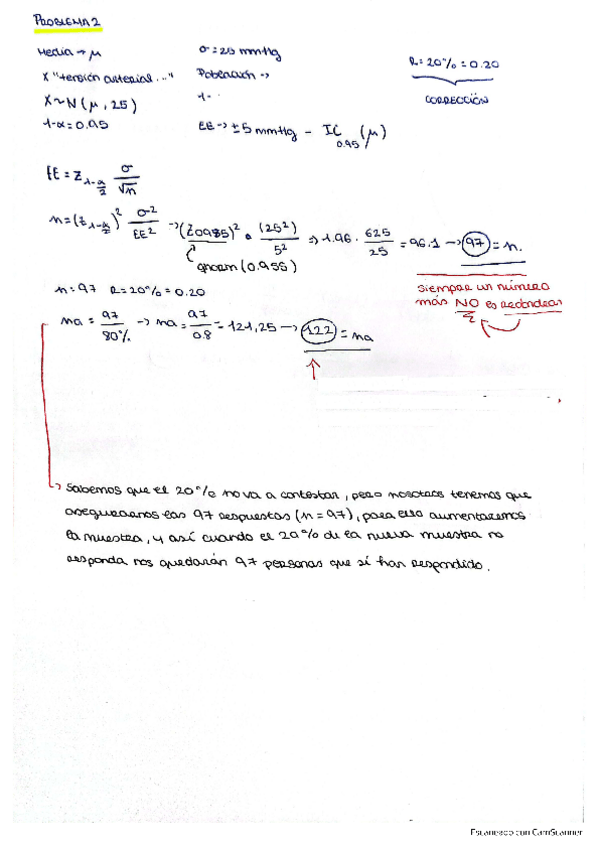 PROBLEMA 2
Media → μ
σ = 25 mmHg
R = 20% = 0.20
X "tensión arterial..."
Población →
CORRECCIÓN
X ~ N(μ, 25)
1-
1-α = 0.95
EE → ±5 mmHg - IC 0.95 (μ)
EE = Z 1-α/2 σ/√n
n = (Z 1-α/2)² σ²/EE² → (Z0985)² · (25²)/5² ⇒ 1.96 · 625/25 = 96.1 → 97 = n.
qnorm(0.955)
siempre un número
más NO es redondear
n = 97 R = 20% = 0.20
na = 97/80% → na = 97/0.8 = 121,25 → 122 = na
Sabemos que el 20% no va a contestar, pero nosotros tenemos que
asegurarnos las 97 respuestas (n = 97), para ello aumentaremos
la muestra, y así cuando el 20% de la nueva muestra no
responda nos quedarán 97 personas que sí han respondido.
Escaneado con CamScanner